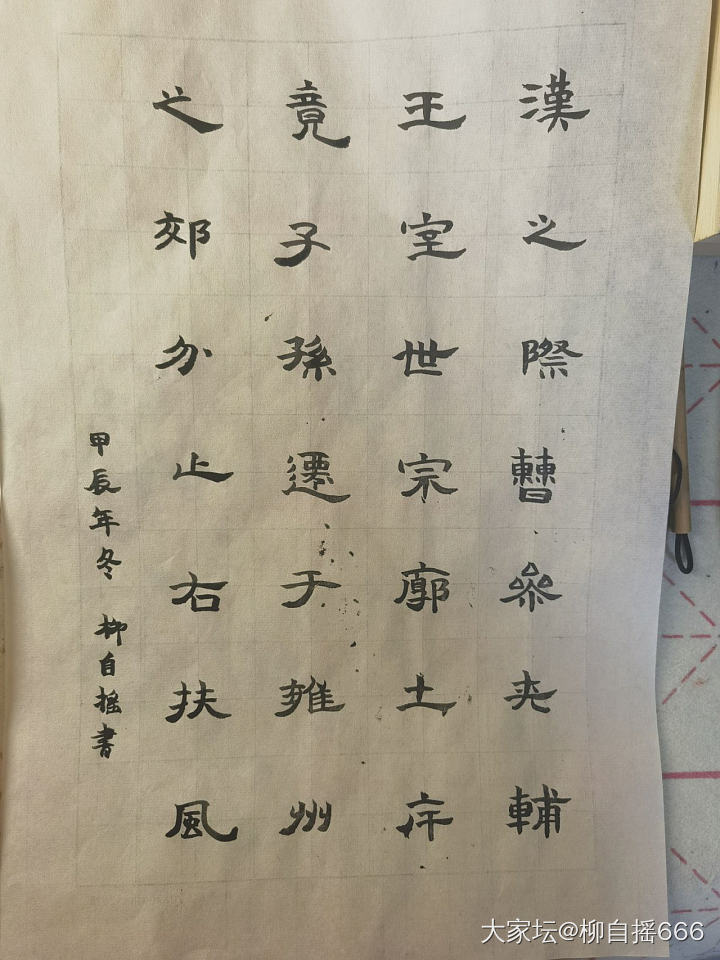 漢之際曹參夾輔
王室世宗廓土斥
竟子孫遷于雍州
之郊分止右扶風
甲辰年冬 柳自摇書
大家坛@柳自摇666